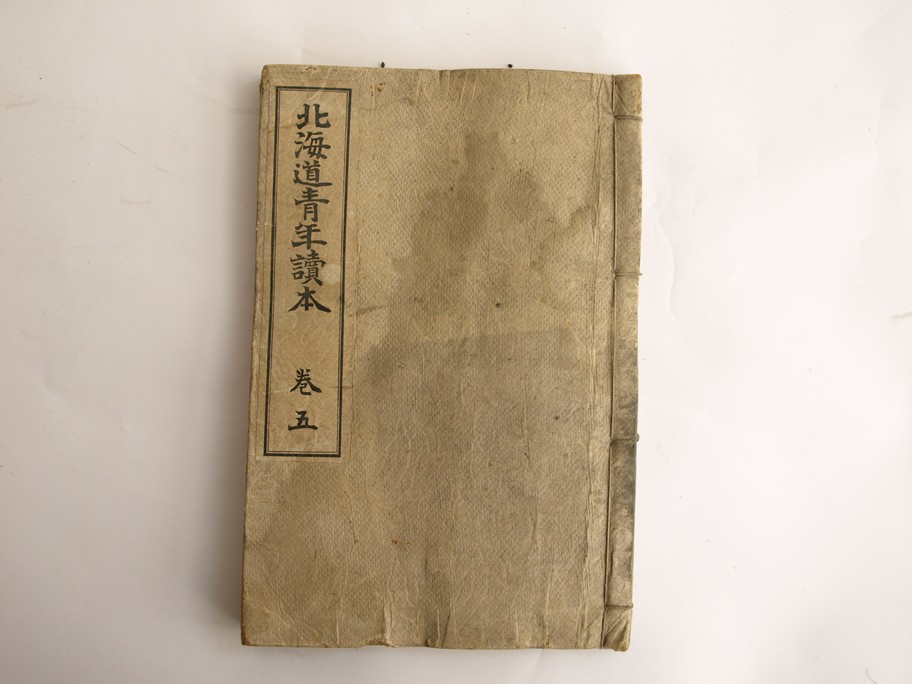 北海道青年讀本 巻五